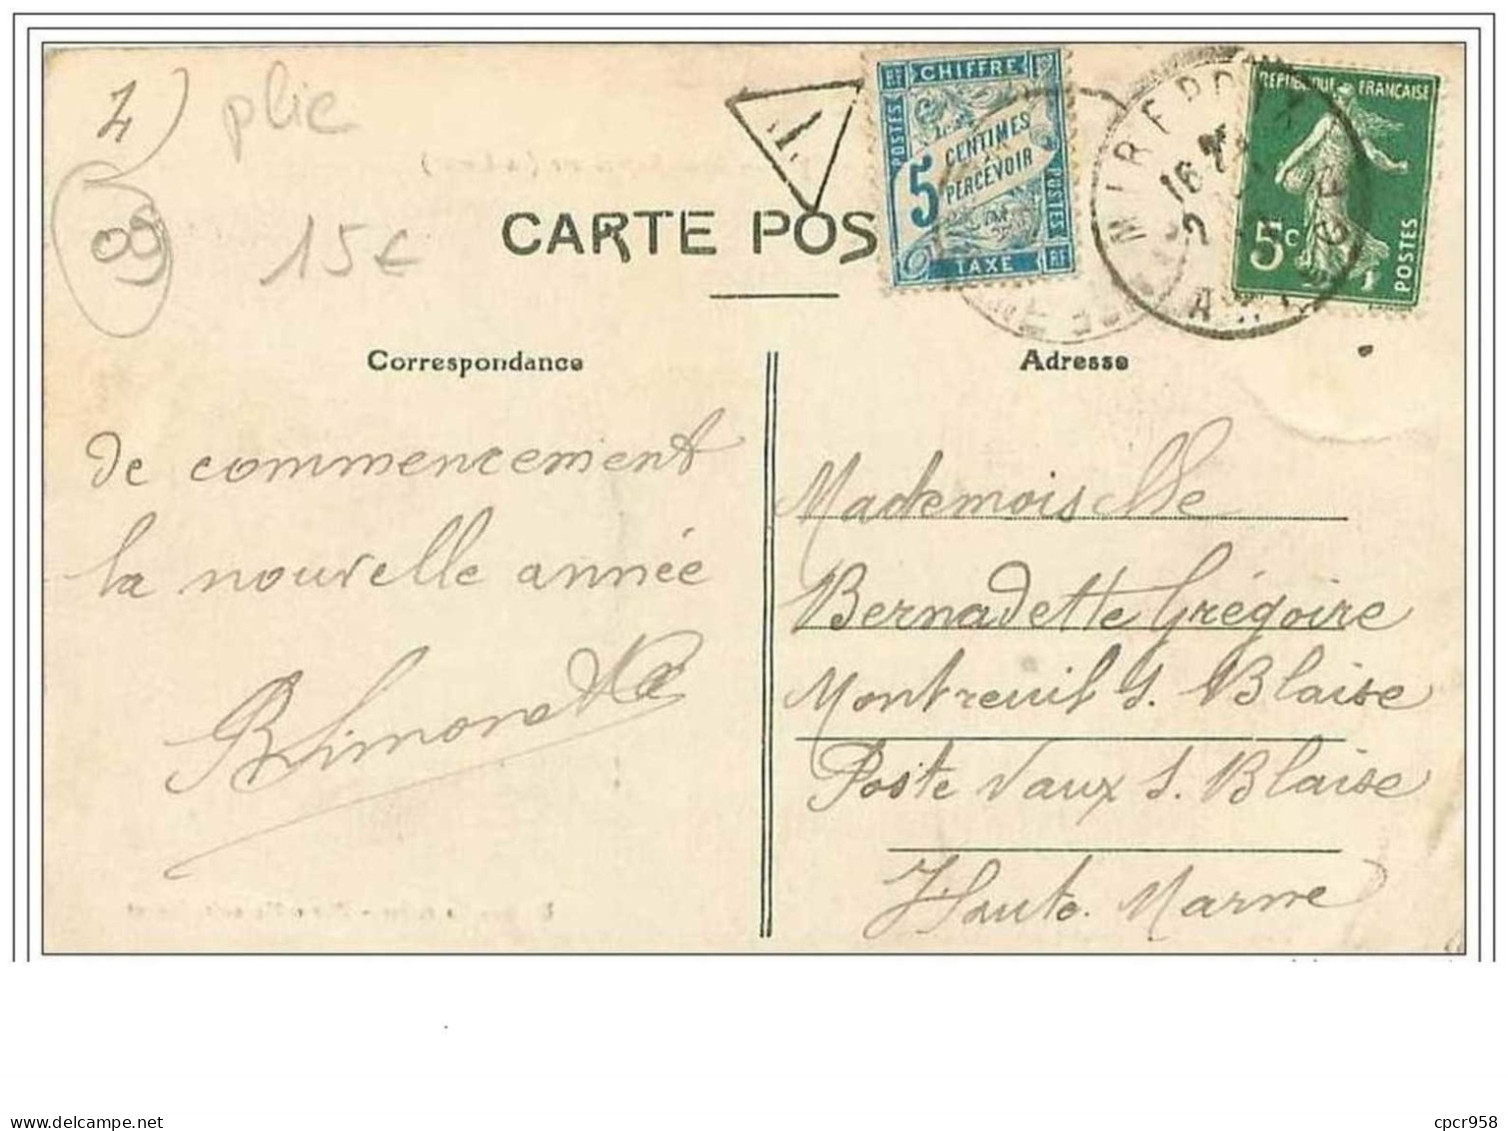 4)
plie
09
15€
CARTE POS
T
RF CHIFFRE
POSTES
5 CENTIMES
A
PERCEVOIR
POSTES
TAXE RF
MIREPOIX
16
2
ARIEGE
REPUBLIQUE FRANÇAISE
5c
POSTES
Correspondance
Adresse
de commencement
la nouvelle année
Mademoiselle
Bernadette Grégoire
Montreuil s. Blaise
Poste Vaux s. Blaise
Haute. Marne
www.delcampe.net
cpcr958